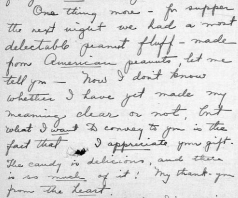 One thing more - for supper
the next night we had a most
delectable peanut fluff - made
from American peanuts, let me
tell you - Now I don't know
whether I have yet made my
meaning clear or not, but
what I want to convey to you is the
fact that I appreciate your gift.
The candy is delicious, and there
is so much of it! My thank-you
from the heart.